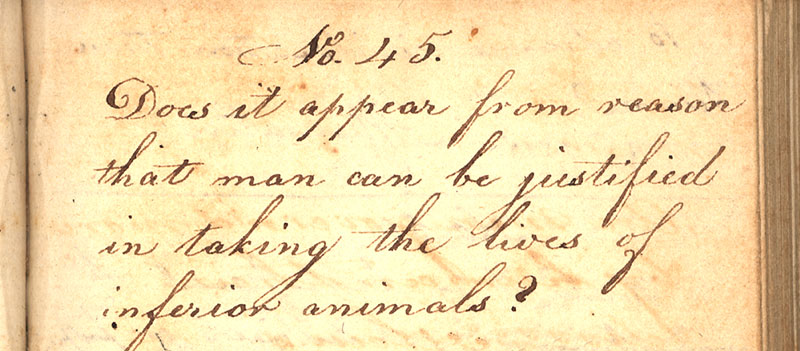 No. 45.
Does it appear from reason
that man can be justified
in taking the lives of
inferior animals?